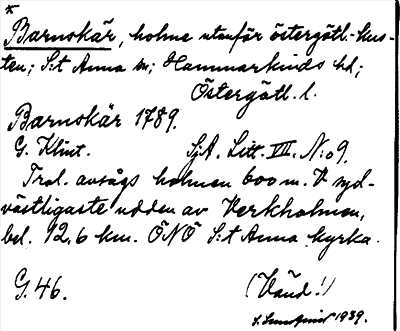 *
Barnskär, holme utanför östergötl.-kus-
ten; S:t Anna sn; Hammarkinds hd;
Östergötl. l.
Barnskär 1789.
G. Klint. SjA. Litt. VII. N:o 9.
Trol. avsågs holmen 600 m. V syd-
västligaste udden av Verkholmen,
bel. 12,6 km. ÖNÖ S:t Anna kyrka.
G. 46. (Vänd!)
1939.